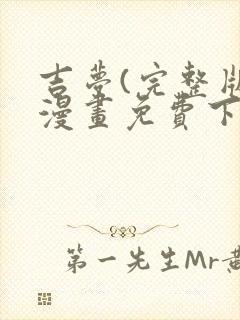 吉夢(完整版
漫畫免費下
第一先生Mr黃